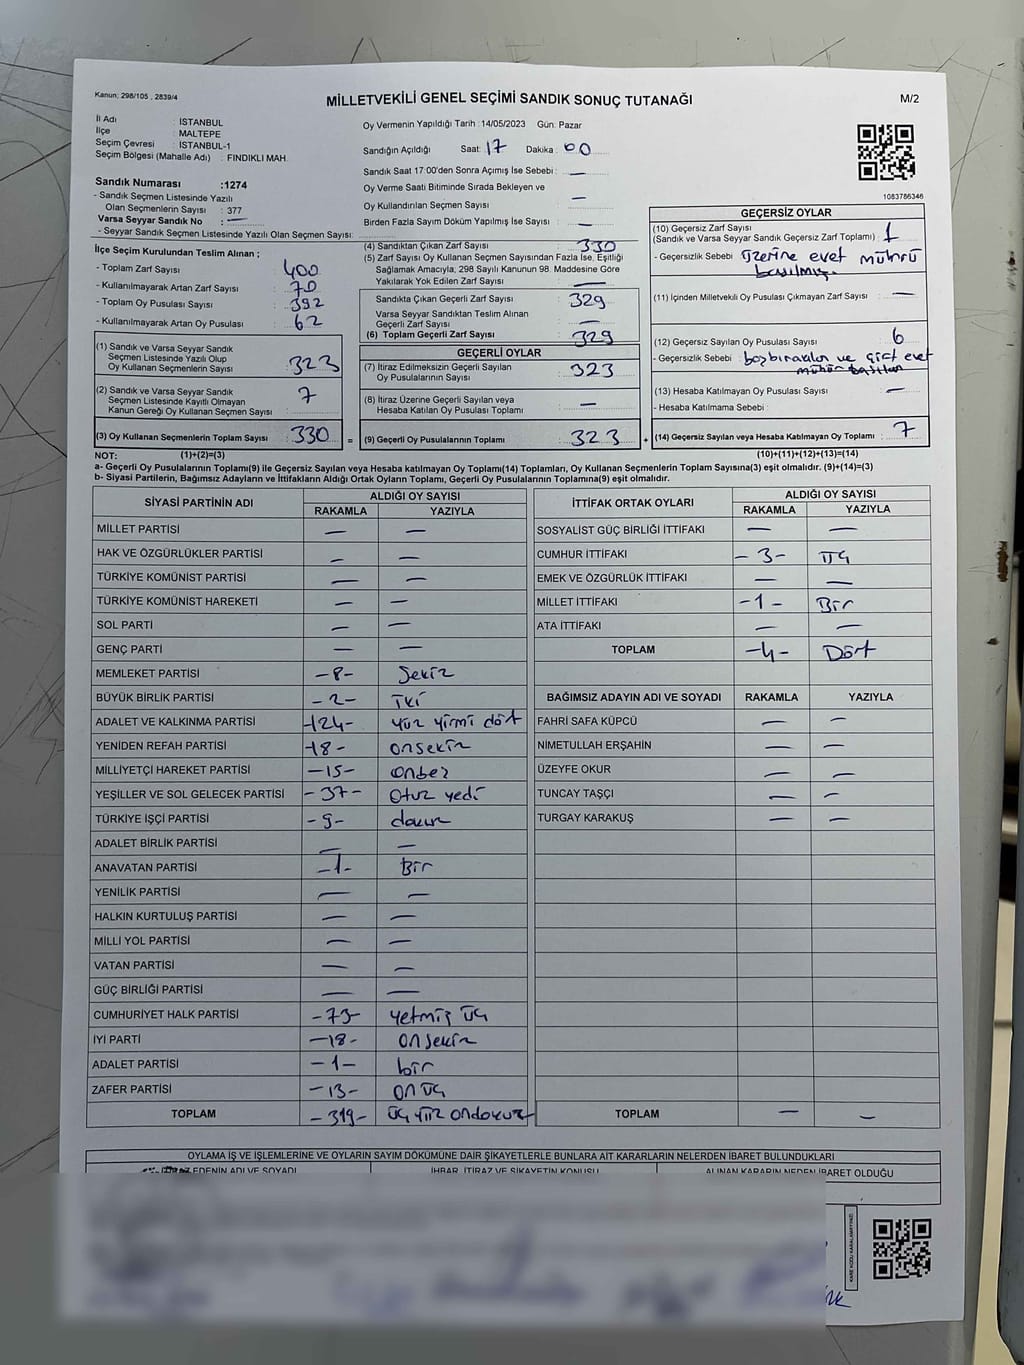 Kanun; 298/105 , 2839/4
MİLLETVEKİLİ GENEL SEÇİMİ SANDIK SONUÇ TUTANAĞI
M/2
İl Adı : İSTANBUL
İlçe : MALTEPE
Seçim Çevresi : İSTANBUL-1
Seçim Bölgesi (Mahalle Adı) : FINDIKLI MAH.
Oy Vermenin Yapıldığı Tarih : 14/05/2023 Gün: Pazar
Sandığın Açıldığı Saat: 17 Dakika : 00
Sandık Saat 17:00'den Sonra Açımış İse Sebebi : —
Oy Verme Saati Bitiminde Sırada Bekleyen ve
Oy Kullandırılan Seçmen Sayısı : —
Birden Fazla Sayım Döküm Yapılmış İse Sayısı : —
Sandık Numarası :1274
- Sandık Seçmen Listesinde Yazılı
Olan Seçmenlerin Sayısı : 377
Varsa Seyyar Sandık No : —
- Seyyar Sandık Seçmen Listesinde Yazılı Olan Seçmen Sayısı:
1083786346
İlçe Seçim Kurulundan Teslim Alınan ;
- Toplam Zarf Sayısı : 400
- Kullanılmayarak Artan Zarf Sayısı : 70
- Toplam Oy Pusulası Sayısı : 392
- Kullanılmayarak Artan Oy Pusulası : 62
(1) Sandık ve Varsa Seyyar Sandık
Seçmen Listesinde Yazılı Olup
Oy Kullanan Seçmenlerin Sayısı : 323
(2) Sandık ve Varsa Seyyar Sandık
Seçmen Listesinde Kayıtlı Olmayan
Kanun Gereği Oy Kullanan Seçmen Sayısı : 7
(3) Oy Kullanan Seçmenlerin Toplam Sayısı : 330 =
(4) Sandıktan Çıkan Zarf Sayısı : 330
(5) Zarf Sayısı Oy Kullanan Seçmen Sayısından Fazla İse, Eşitliği
Sağlamak Amacıyla, 298 Sayılı Kanunun 98. Maddesine Göre
Yakılarak Yok Edilen Zarf Sayısı : —
Sandıkta Çıkan Geçerli Zarf Sayısı : 329
Varsa Seyyar Sandıktan Teslim Alınan
Geçerli Zarf Sayısı : —
(6) Toplam Geçerli Zarf Sayısı : 329
GEÇERLİ OYLAR
(7) İtiraz Edilmeksizin Geçerli Sayılan
Oy Pusulalarının Sayısı : 323
(8) İtiraz Üzerine Geçerli Sayılan veya
Hesaba Katılan Oy Pusulası Toplamı : —
(9) Geçerli Oy Pusulalarının Toplamı : 323 +
GEÇERSİZ OYLAR
(10) Geçersiz Zarf Sayısı
(Sandık ve Varsa Seyyar Sandık Geçersiz Zarf Toplamı) : 1
- Geçersizlik Sebebi : üzerine evet mührü
basılmış.
(11) İçinden Milletvekili Oy Pusulası Çıkmayan Zarf Sayısı : —
(12) Geçersiz Sayılan Oy Pusulası Sayısı : 6
- Geçersizlik Sebebi : boş bırakılan ve çift evet
mühür basılan
(13) Hesaba Katılmayan Oy Pusulası Sayısı : —
- Hesaba Katılmama Sebebi :
(14) Geçersiz Sayılan veya Hesaba Katılmayan Oy Pusulası Toplamı : 7
NOT: (1)+(2)=(3) (10)+(11)+(12)+(13)=(14)
a- Geçerli Oy Pusulalarının Toplamı(9) ile Geçersiz Sayılan veya Hesaba katılmayan Oy Pusulası Toplamı(14) Toplamları, Oy Kullanan Seçmenlerin Toplam Sayısına(3) eşit olmalıdır. (9)+(14)=(3)
b- Siyasi Partilerin, Bağımsız Adayların ve İttifakların Aldığı Ortak Oyların Toplamı, Geçerli Oy Pusulalarının Toplamına(9) eşit olmalıdır.
SİYASİ PARTİNİN ADI ALDIĞI OY SAYISI
RAKAMLA YAZIYLA
MİLLET PARTİSİ — —
HAK VE ÖZGÜRLÜKLER PARTİSİ — —
TÜRKİYE KOMÜNİST PARTİSİ — —
TÜRKİYE KOMÜNİST HAREKETİ — —
SOL PARTİ — —
GENÇ PARTİ — —
MEMLEKET PARTİSİ -8- Sekiz
BÜYÜK BİRLİK PARTİSİ -2- İki
ADALET VE KALKINMA PARTİSİ -124- Yüz yirmi dört
YENİDEN REFAH PARTİSİ -18- onsekiz
MİLLİYETÇİ HAREKET PARTİSİ -15- onbeş
YEŞİLLER VE SOL GELECEK PARTİSİ -37- Otuz yedi
TÜRKİYE İŞÇİ PARTİSİ -9- dokuz
ADALET BİRLİK PARTİSİ — —
ANAVATAN PARTİSİ -1- Bir
YENİLİK PARTİSİ — —
HALKIN KURTULUŞ PARTİSİ — —
MİLLİ YOL PARTİSİ — —
VATAN PARTİSİ — —
GÜÇ BİRLİĞİ PARTİSİ — —
CUMHURİYET HALK PARTİSİ -73- yetmiş üç
İYİ PARTİ -18- onsekiz
ADALET PARTİSİ -1- bir
ZAFER PARTİSİ -13- on üç
TOPLAM -319- üç yüz ondokuz
İTTİFAK ORTAK OYLARI ALDIĞI OY SAYISI
RAKAMLA YAZIYLA
SOSYALİST GÜÇ BİRLİĞİ İTTİFAKI — —
CUMHUR İTTİFAKI -3- üç
EMEK VE ÖZGÜRLÜK İTTİFAKI — —
MİLLET İTTİFAKI -1- Bir
ATA İTTİFAKI — —
TOPLAM -4- Dört
BAĞIMSIZ ADAYIN ADI VE SOYADI RAKAMLA YAZIYLA
FAHRİ SAFA KÜPCÜ — —
NİMETULLAH ERŞAHİN — —
ÜZEYFE OKUR — —
TUNCAY TAŞÇI — —
TURGAY KARAKUŞ — —
TOPLAM — —
OYLAMA İŞ VE İŞLEMLERİNE VE OYLARIN SAYIM DÖKÜMÜNE DAİR ŞİKAYETLERLE BUNLARA AİT KARARLARIN NELERDEN İBARET BULUNDUKLARI
EDENİN ADI VE SOYADI İHBAR, İTİRAZ VE ŞİKAYETİN KONUSU ALINAN KARARIN NEDEN İBARET OLDUĞU
KARE KODU KARALAMAYINIZ!